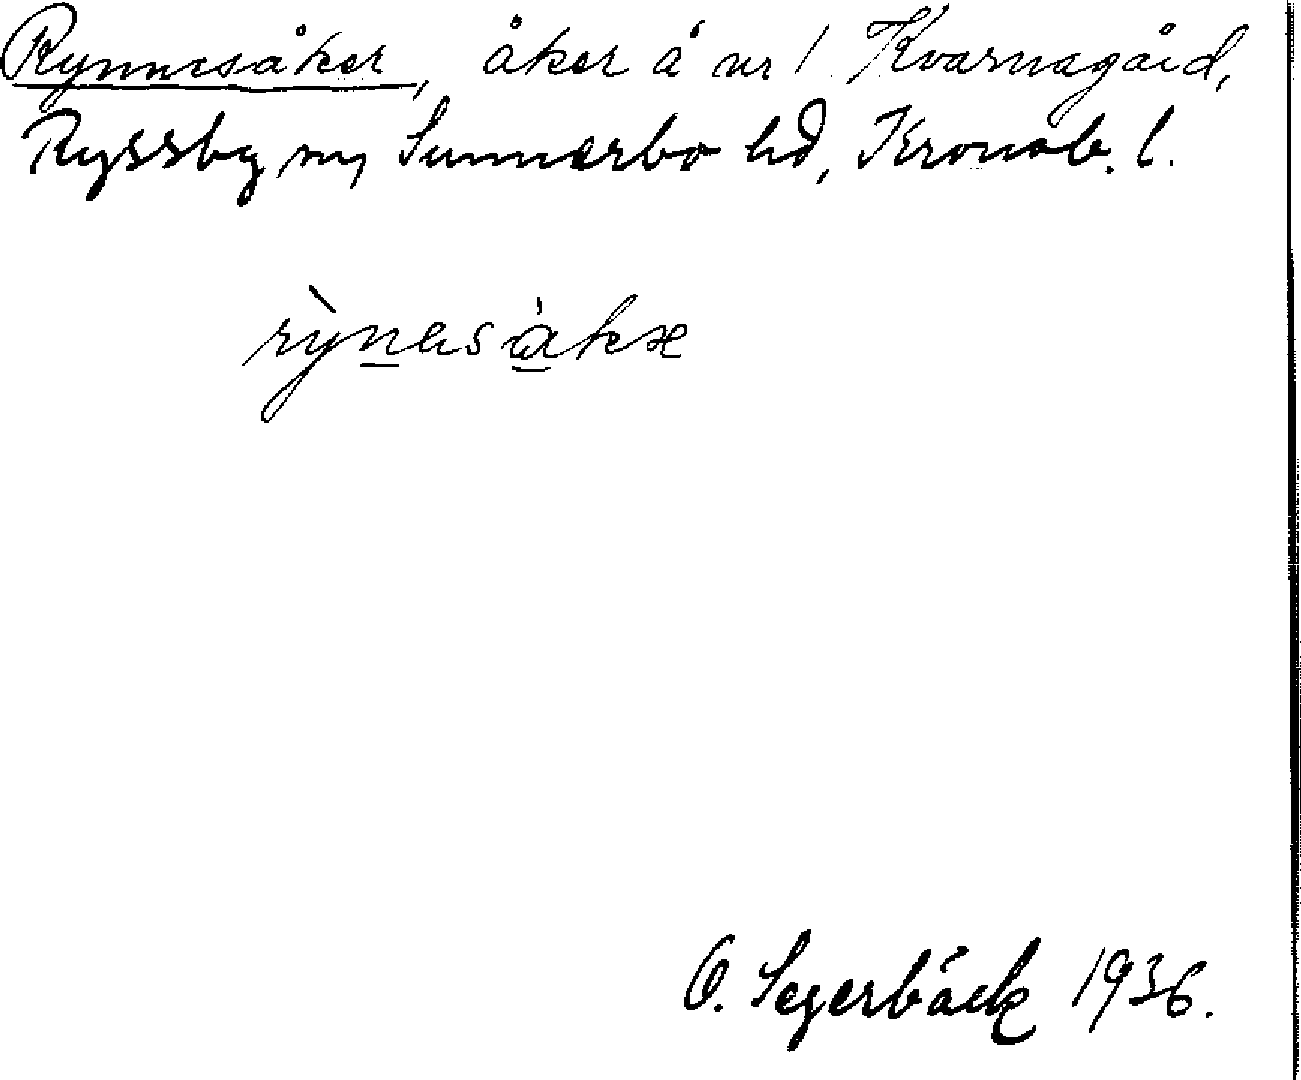 Rynnesåker, åker å nr 1 Kvarnagård,
Ryssby sn, Sunnerbo hd, Kronob. l.
O. Segerbäck 1936.